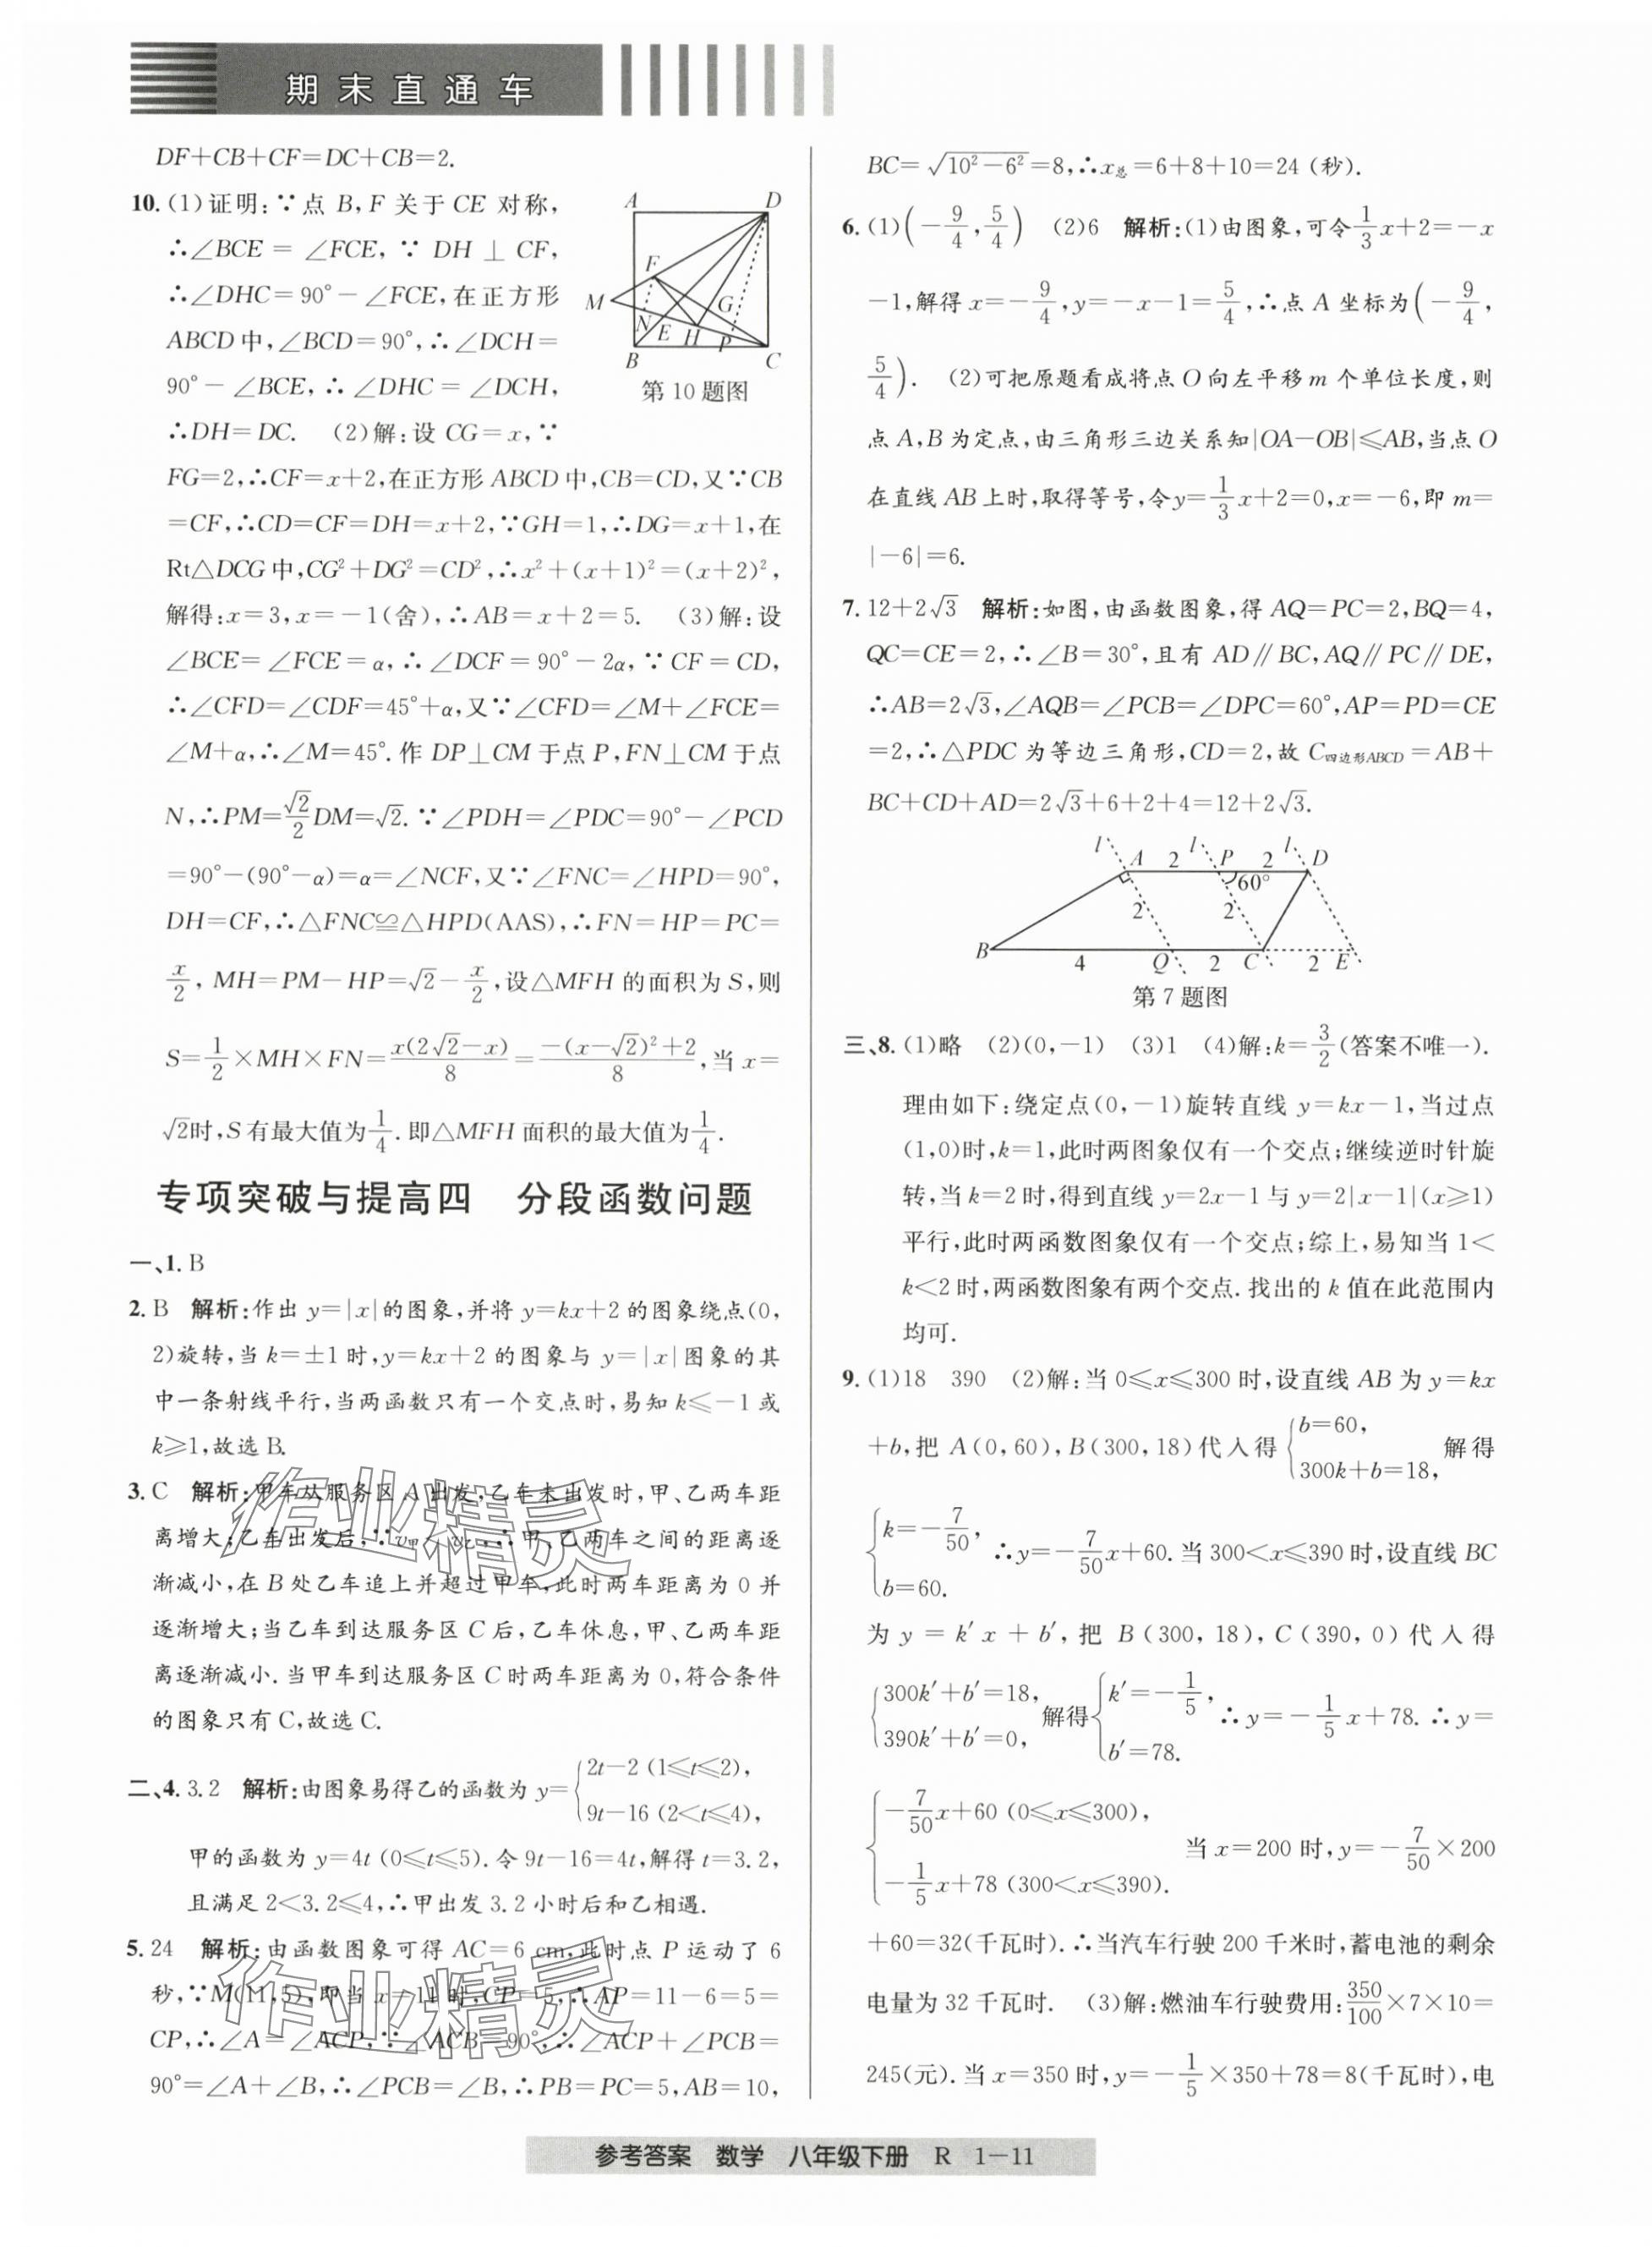 期末直通车
DF+CB+CF=DC+CB=2.
10. (1)证明:∵点 B,F 关于 CE 对称,
∴∠BCE = ∠FCE, ∵ DH ⊥ CF,
∴∠DHC=90°-∠FCE,在正方形
ABCD 中,∠BCD=90°,∴∠DCH=
90°-∠BCE,∴∠DHC=∠DCH,
∴DH=DC. (2)解:设 CG=x,∵
A D F M G N E H P B C
第 10 题图
FG=2,∴CF=x+2,在正方形 ABCD 中,CB=CD,又∵CB
=CF,∴CD=CF=DH=x+2,∵GH=1,∴DG=x+1,在
Rt△DCG 中,CG²+DG²=CD²,∴x²+(x+1)²=(x+2)²,
解得:x=3,x=-1(舍),∴AB=x+2=5. (3)解:设
∠BCE=∠FCE=α,∴∠DCF=90°-2α,∵CF=CD,
∴∠CFD=∠CDF=45°+α,又∵∠CFD=∠M+∠FCE=
∠M+α,∴∠M=45°.作 DP⊥CM 于点 P,FN⊥CM 于点
N,∴PM=√2/2 DM=√2.∵∠PDH=∠PDC=90°-∠PCD
=90°-(90°-α)=α=∠NCF,又∵∠FNC=∠HPD=90°,
DH=CF,∴△FNC≌△HPD(AAS),∴FN=HP=PC=
x/2, MH=PM-HP=√2-x/2,设△MFH 的面积为 S,则
S=1/2×MH×FN=x(2√2-x)/8=(-(x-√2)²+2)/8,当 x=
√2时,S 有最大值为1/4.即△MFH 面积的最大值为1/4.
专项突破与提高四 分段函数问题
一、1. B
2. B 解析:作出 y=|x|的图象,并将 y=kx+2 的图象绕点(0,
2)旋转,当 k=±1 时,y=kx+2 的图象与 y=|x|图象的其
中一条射线平行,当两函数只有一个交点时,易知 k≤-1 或
k≥1,故选 B.
3. C 解析:甲车从服务区 A 出发,乙车未出发时,甲、乙两车距
离增大;乙车出发后,∵v甲 ,∴甲、乙两车之间的距离逐
渐减小,在 B 处乙车追上并超过甲车,此时两车距离为 0 并
逐渐增大;当乙车到达服务区 C 后,乙车休息,甲、乙两车距
离逐渐减小.当甲车到达服务区 C 时两车距离为 0,符合条件
的图象只有 C,故选 C.
二、4. 3.2 解析:由图象易得乙的函数为 y={2t-2 (1≤t≤2), 9t-16 (2<t≤4),
甲的函数为 y=4t (0≤t≤5).令 9t-16=4t,解得 t=3.2,
且满足 2<3.2≤4,∴甲出发 3.2 小时后和乙相遇.
5. 24 解析:由函数图象可得 AC=6 cm,此时点 P 运动了 6
秒,∵M(11,5),即当 x=11 时,CP=5,∴AP=11-6=5=
CP,∴∠A=∠ACP,∵∠ACB=90°,∴∠ACP+∠PCB=
90°=∠A+∠B,∴∠PCB=∠B,∴PB=PC=5,AB=10,
BC=√(10²-6²)=8,∴x总=6+8+10=24 (秒).
6. (1)(-9/4,5/4) (2)6 解析:(1)由图象,可令1/3 x+2=-x
-1,解得 x=-9/4,y=-x-1=5/4,∴点 A 坐标为(-9/4,
5/4). (2)可把原题看成将点 O 向左平移 m 个单位长度,则
点 A,B 为定点,由三角形三边关系知|OA-OB|≤AB,当点 O
在直线 AB 上时,取得等号,令 y=1/3 x+2=0,x=-6,即 m=
|-6|=6.
7. 12+2√3 解析:如图,由函数图象,得 AQ=PC=2,BQ=4,
QC=CE=2,∴∠B=30°,且有 AD∥BC,AQ∥PC∥DE,
∴AB=2√3,∠AQB=∠PCB=∠DPC=60°,AP=PD=CE
=2,∴△PDC 为等边三角形,CD=2,故 C四边形ABCD=AB+
BC+CD+AD=2√3+6+2+4=12+2√3.
l A 2 l P 2 l D
60°
2 2
B 4 Q 2 C 2 E
第 7 题图
三、8. (1)略 (2)(0,-1) (3)1 (4)解:k=3/2(答案不唯一).
理由如下:绕定点(0,-1)旋转直线 y=kx-1,当过点
(1,0)时,k=1,此时两图象仅有一个交点;继续逆时针旋
转,当 k=2 时,得到直线 y=2x-1 与 y=2|x-1|(x≥1)
平行,此时两函数图象仅有一个交点;综上,易知当 1<
k<2 时,两函数图象有两个交点.找出的 k 值在此范围内
均可.
9. (1)18 390 (2)解:当 0≤x≤300 时,设直线 AB 为 y=kx
+b,把 A(0,60),B(300,18)代入得{b=60, 300k+b=18, 解得
{k=-7/50, b=60. ∴y=-7/50 x+60.当 300<x≤390 时,设直线 BC
为 y = k′x + b′, 把 B(300,18), C(390,0) 代入得
{300k′+b′=18, 390k′+b′=0, 解得{k′=-1/5, b′=78. ∴y=-1/5 x+78. ∴y=
{-7/50 x+60 (0≤x≤300), -1/5 x+78 (300<x≤390). 当 x=200 时,y=-7/50×200
+60=32(千瓦时).∴当汽车行驶 200 千米时,蓄电池的剩余
电量为 32 千瓦时. (3)解:燃油车行驶费用:350/100×7×10=
245(元).当 x=350 时,y=-1/5×350+78=8(千瓦时),电
作业精灵
作业精灵
参考答案 数学 八年级下册 R 1-11